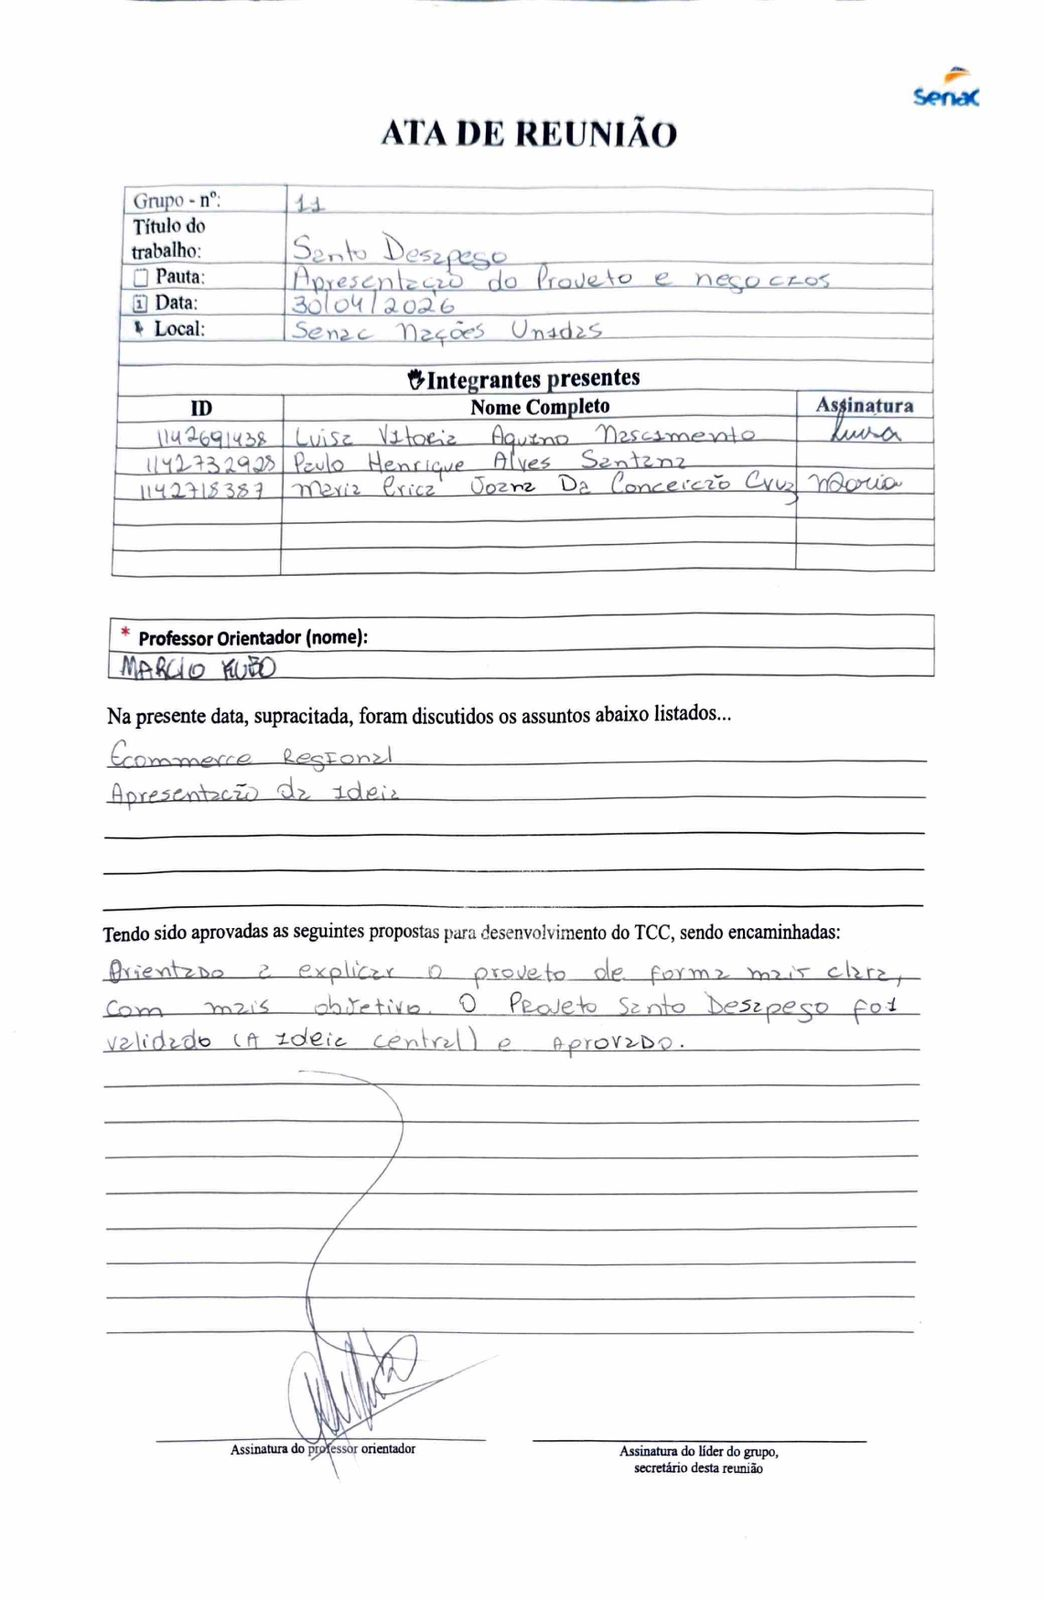 Senac
ATA DE REUNIÃO
Grupo - nº: 11
Título do
trabalho: Santo Desapego
Pauta: Apresentação do Proveto e negoczos
Data: 30/04/2026
Local: Senac Nações Unidas
Integrantes presentes
ID Nome Completo Assinatura
1142691438 Luisa Vitoria Aquino Nascimento Luisa
1142732928 Paulo Henrique Alves Santana
1142718387 Maria Erica Joana Da Conceição Cruz Maria
* Professor Orientador (nome):
MARCIO KUBO
Na presente data, supracitada, foram discutidos os assuntos abaixo listados...
Ecommerce Regional
Apresentação da Ideia
Tendo sido aprovadas as seguintes propostas para desenvolvimento do TCC, sendo encaminhadas:
Orientado a explicar o proveto de forma mais clara,
com mais objetivo. O Projeto Santo Desapego foi
validado (A Ideia central) e Aprovado.
Assinatura do professor orientador
Assinatura do líder do grupo,
secretário desta reunião